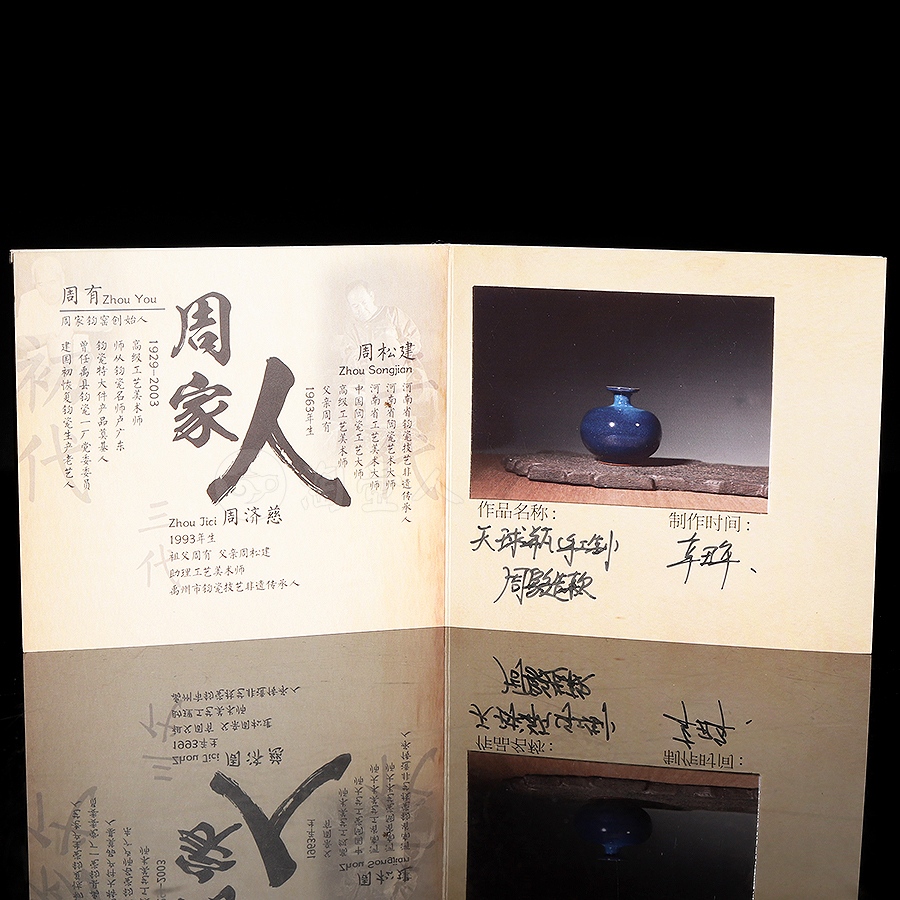 周有 Zhou You
周家钧窑创始人
1929-2003
高级工艺美术师
师从钧瓷名师卢广东
钧瓷特大件产品奠基人
曾任禹县钧瓷一厂党委委员
建国初恢复钧瓷生产老艺人
初代
周家人
周松建
Zhou Songjian
河南省钧瓷技艺非遗传承人
河南省陶瓷艺术大师
河南省工艺美术大师
中国陶瓷工艺大师
高级工艺美术师
父亲周有
1963年生
Zhou Jici 周济慈
1993年生
祖父周有 父亲周松建
助理工艺美术师
禹州市钧瓷技艺非遗传承人
三代
作品名称：
天球瓶(手制)
制作时间：
辛丑年、